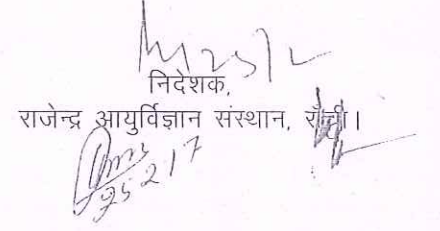 25/2
निदेशक,
राजेन्द्र आयुर्विज्ञान संस्थान, राँची।
25217